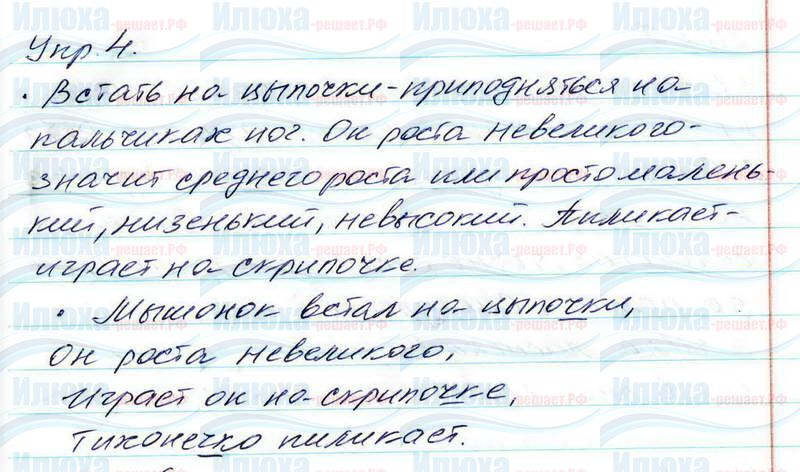 Упр. 4.
· Встать на цыпочки - приподняться на
пальчиках ног. Он роста невеликого -
значит среднего роста или просто малень-
кий, низенький, невысокий. Пиликает -
играет на скрипочке.
· Мышонок встал на цыпочки,
Он роста невеликого,
Играет он на скрипочке,
Тихонечко пиликает.